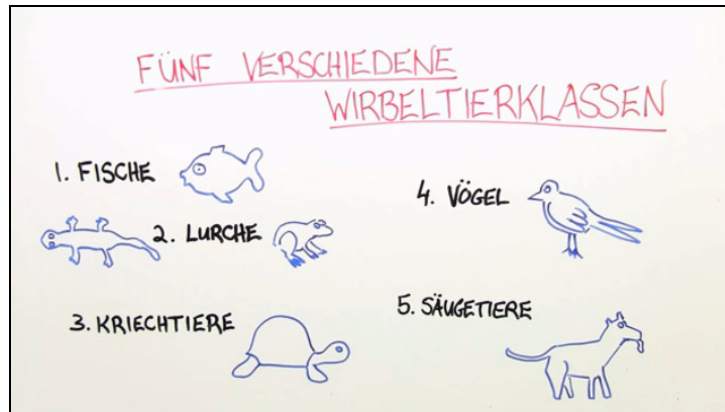 FÜNF VERSCHIEDENE
WIRBELTIERKLASSEN
1. FISCHE
2. LURCHE
3. KRIECHTIERE
4. VÖGEL
5. SÄUGETIERE